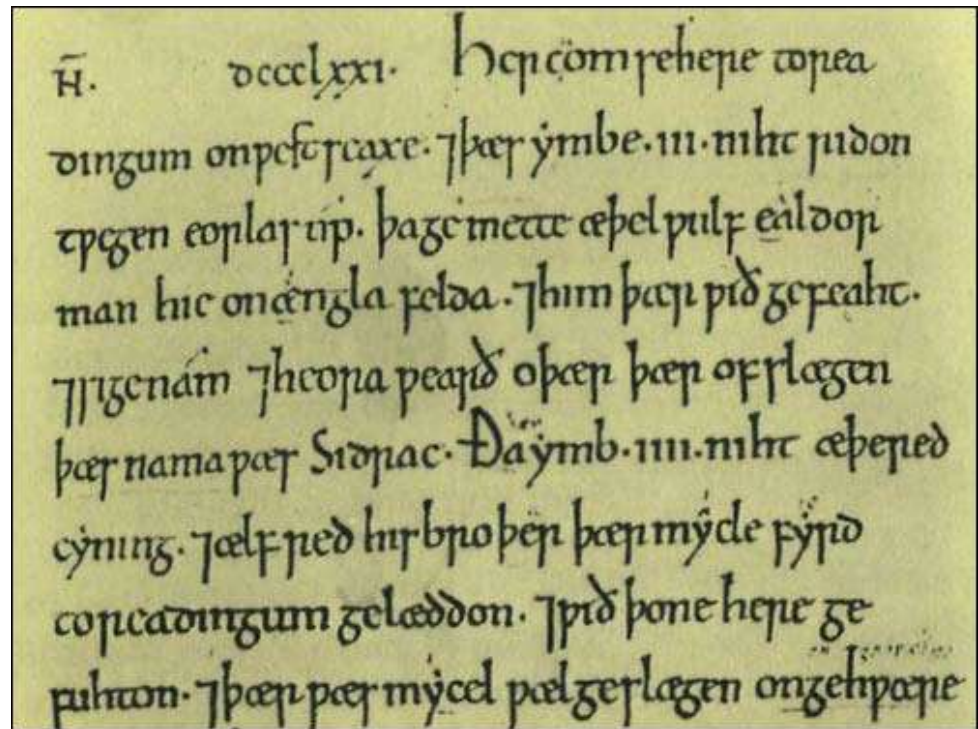 H̄. dccclxxi. Her com se here to rea
dingum on ƿestseaxe. ⁊ þæs ẏmbe .iii. niht ridon
tƿegen eorlas úp. þa gemette æþelƿulf ealdor
man hie on ængla felda. ⁊ him þær ƿið gefeaht.
⁊ sige nám ⁊ heora ƿearð oþær þær ofslægen
þæs nama ƿæs Sidrac. Ða ẏmb .iiii. niht æþered
cẏning. ⁊ ælfred his broþer þær mẏcle fẏrd
to readingum gelæddon. ⁊ ƿið þone here ge
fuhton. ⁊ þær ƿæs mẏcel ƿæl geslægen on gehƿære